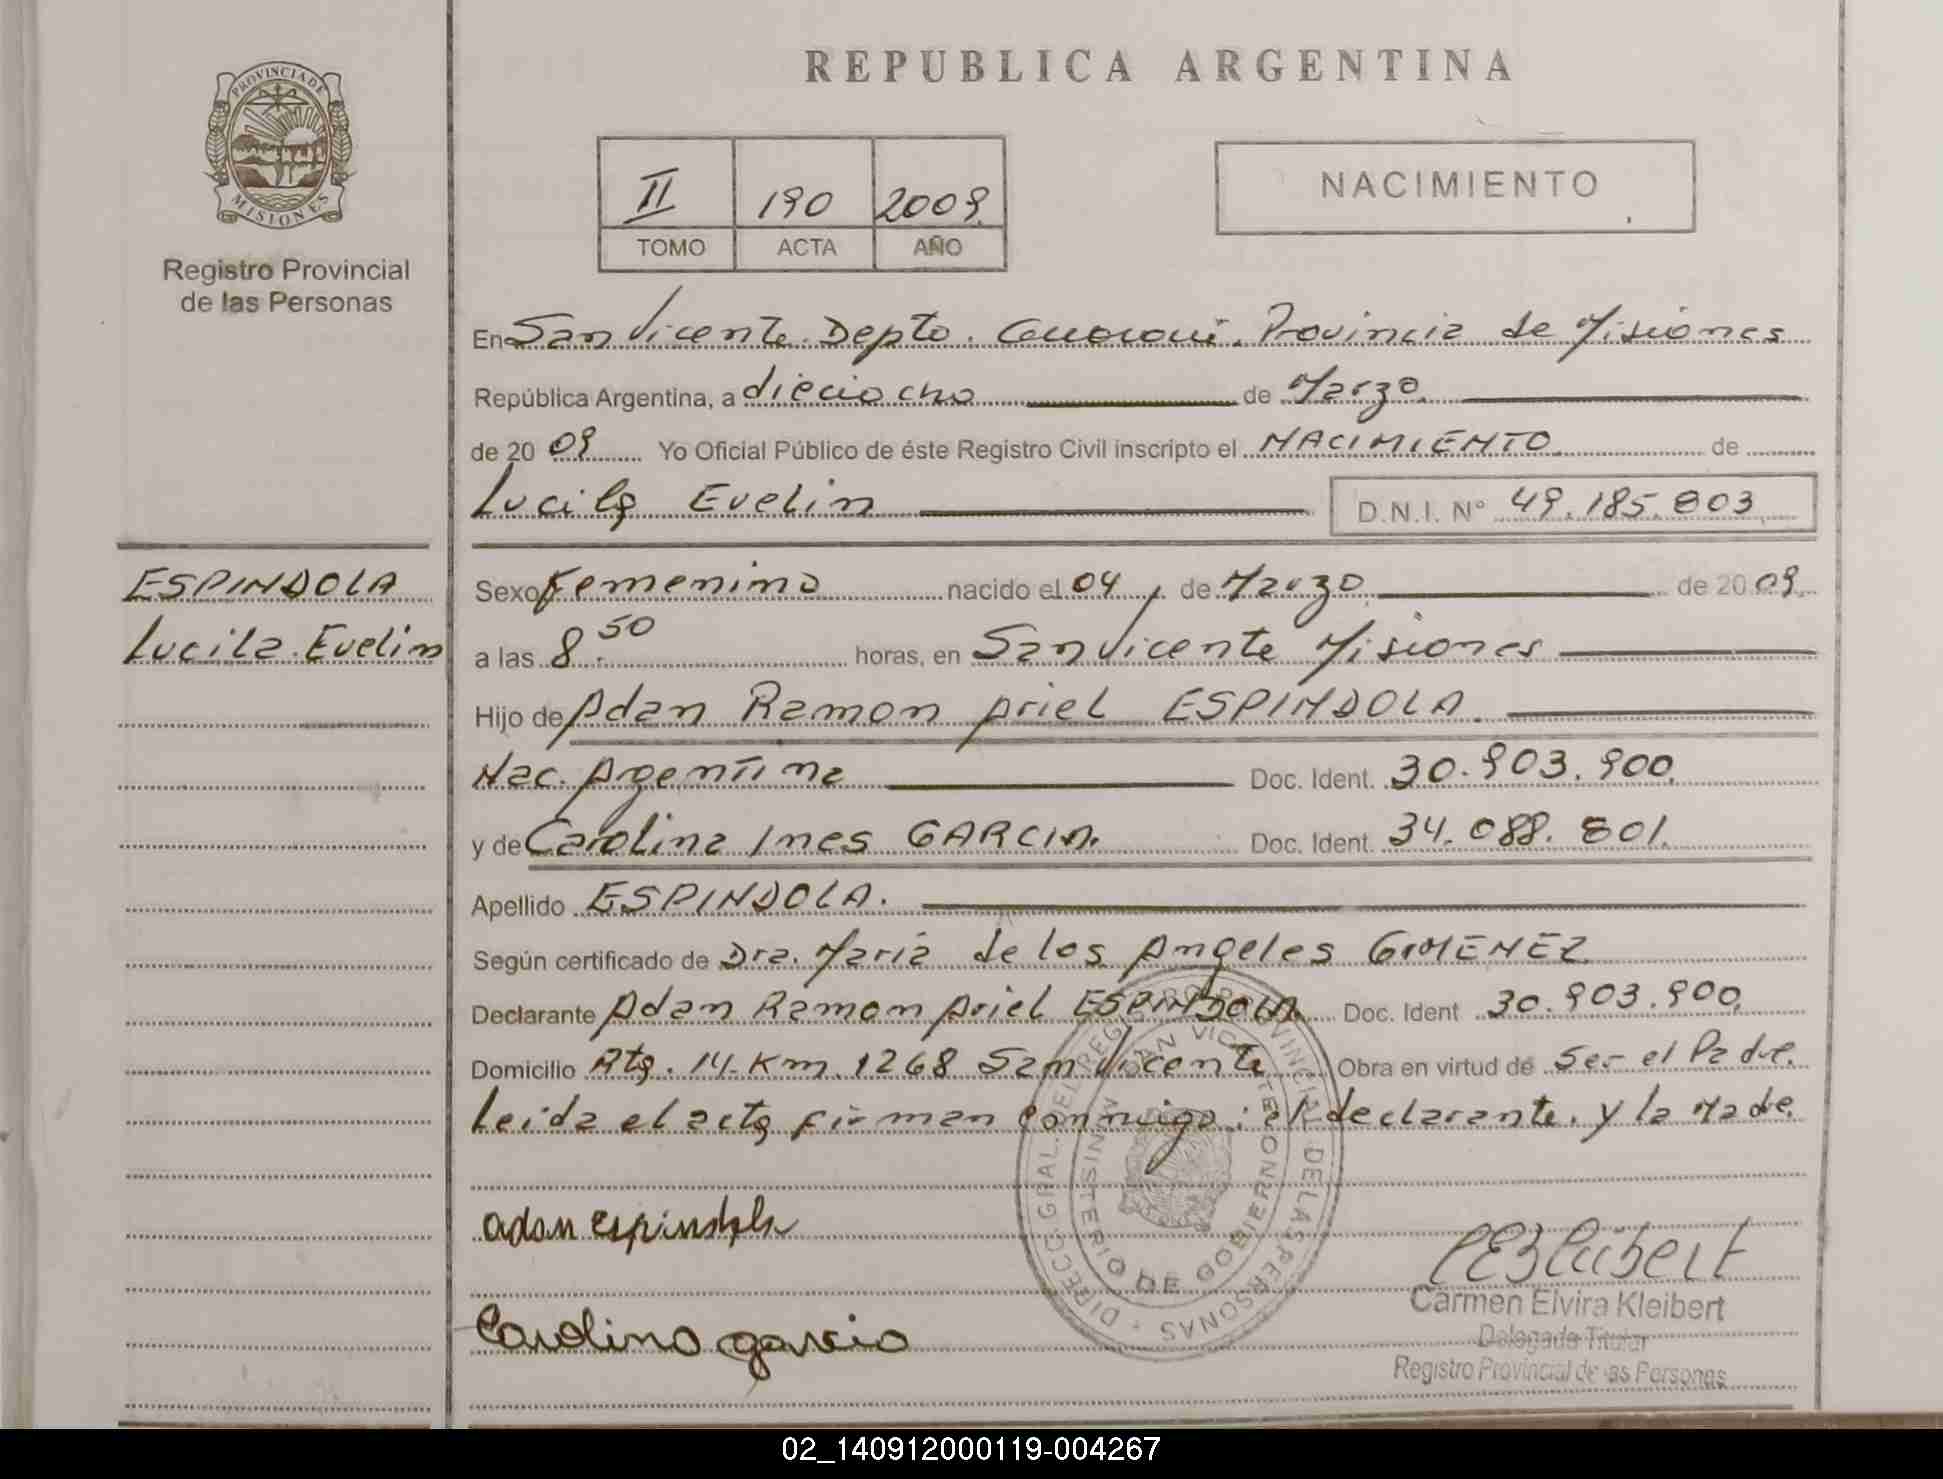 REPUBLICA ARGENTINA
PROVINCIA DE MISIONES
Registro Provincial
de las Personas
II 190 2009.
TOMO ACTA AÑO
NACIMIENTO
En San Vicente. Depto. Guaraní. Provincia de Misiones
República Argentina, a dieciocho de Marzo.
de 20 09 Yo Oficial Público de éste Registro Civil inscripto el NACIMIENTO de
Lucila Evelin D.N.I. Nº 49.185.803
ESPINDOLA
Lucila Evelin
Sexo Femenino nacido el 04 de Marzo de 20 09.
a las 8.50 horas, en San Vicente Misiones
Hijo de Adan Ramon Ariel ESPINDOLA.
Nac. Argentina Doc. Ident. 30.903.900.
y de Carolina Ines GARCIA. Doc. Ident. 34.088.801.
Apellido ESPINDOLA.
Según certificado de Dra. Maria de los Angeles GIMENEZ
Declarante Adan Ramon Ariel ESPINDOLA. Doc. Ident 30.903.900.
Domicilio Rta. 14. Km. 1268 San Vicente Obra en virtud de Ser el Padre.
Leida el acta firman conmigo: el declarante. y la Madre.
DIRECC. GRAL. DEL REGISTRO PROVINCIAL DE LAS PERSONAS
SAN VICENTE
MINISTERIO DE GOBIERNO
adan espindola
Carolina garcia
CEKleibert
Carmen Elvira Kleibert
Delegada Titular
Registro Provincial de las Personas
02_140912000119-004267